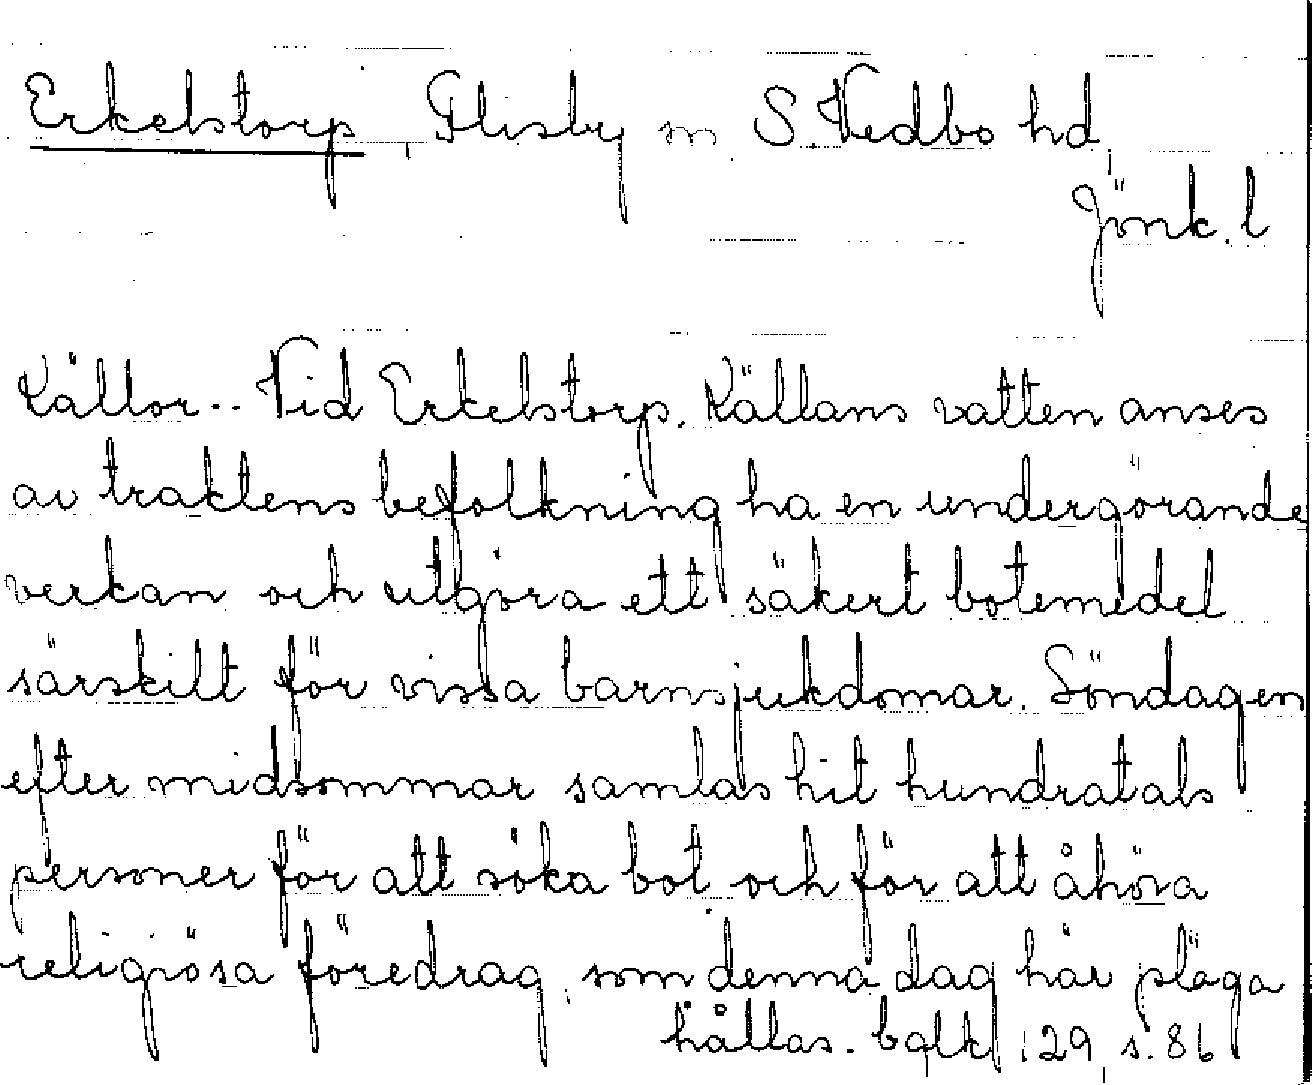 Erkelstorp, Flisby sn S. Vedbo hd,
Jönk. l
Källor.- Vid Erkelstorp. Källans vatten anses
av traktens befolkning ha en undergörande
verkan och utgöra ett säkert botemedel
särskilt för vissa barnsjukdomar. Söndagen
efter midsommar samlas hit hundratals
personer för att söka bot och för att åhöra
religiösa föredrag, som denna dag här pläga
hållas. 29 s. 86